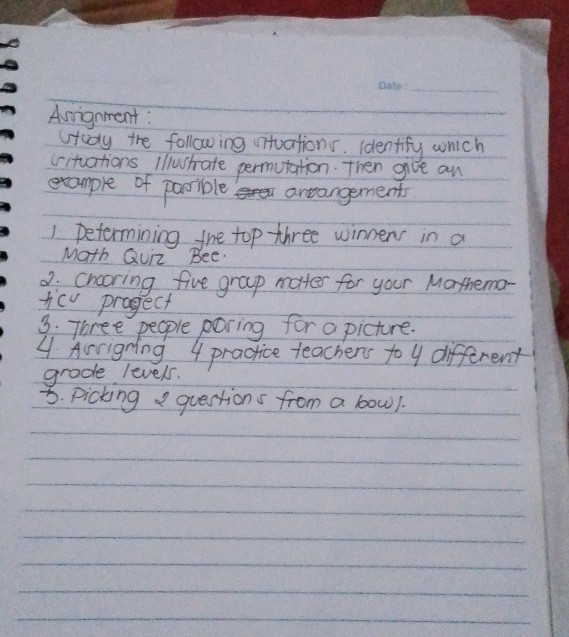 Date:
Assignment:
Study the following situations. Identify which
situations illustrate permutation. Then give an
example of possible arrangements
1. Determining the top three winners in a
Math Quiz Bee.
2. Choosing five group mates for your Mathema-
tics progect
3. Three people posing for a picture.
4. Assigning 4 practice teachers to 4 different
grade levels.
5. Picking 2 questions from a bowl.